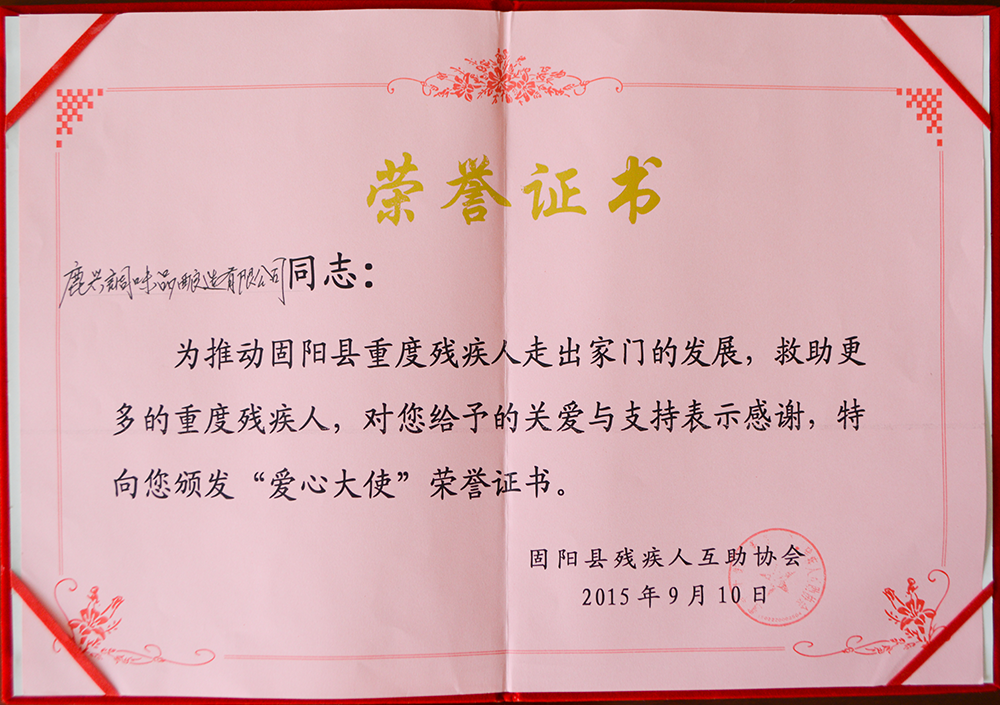 荣誉证书
鹿兴调味品酿造有限公司同志：
为推动固阳县重度残疾人走出家门的发展，救助更
多的重度残疾人，对您给予的关爱与支持表示感谢，特
向您颁发“爱心大使”荣誉证书。
固阳县残疾人互助协会
2015年9月10日